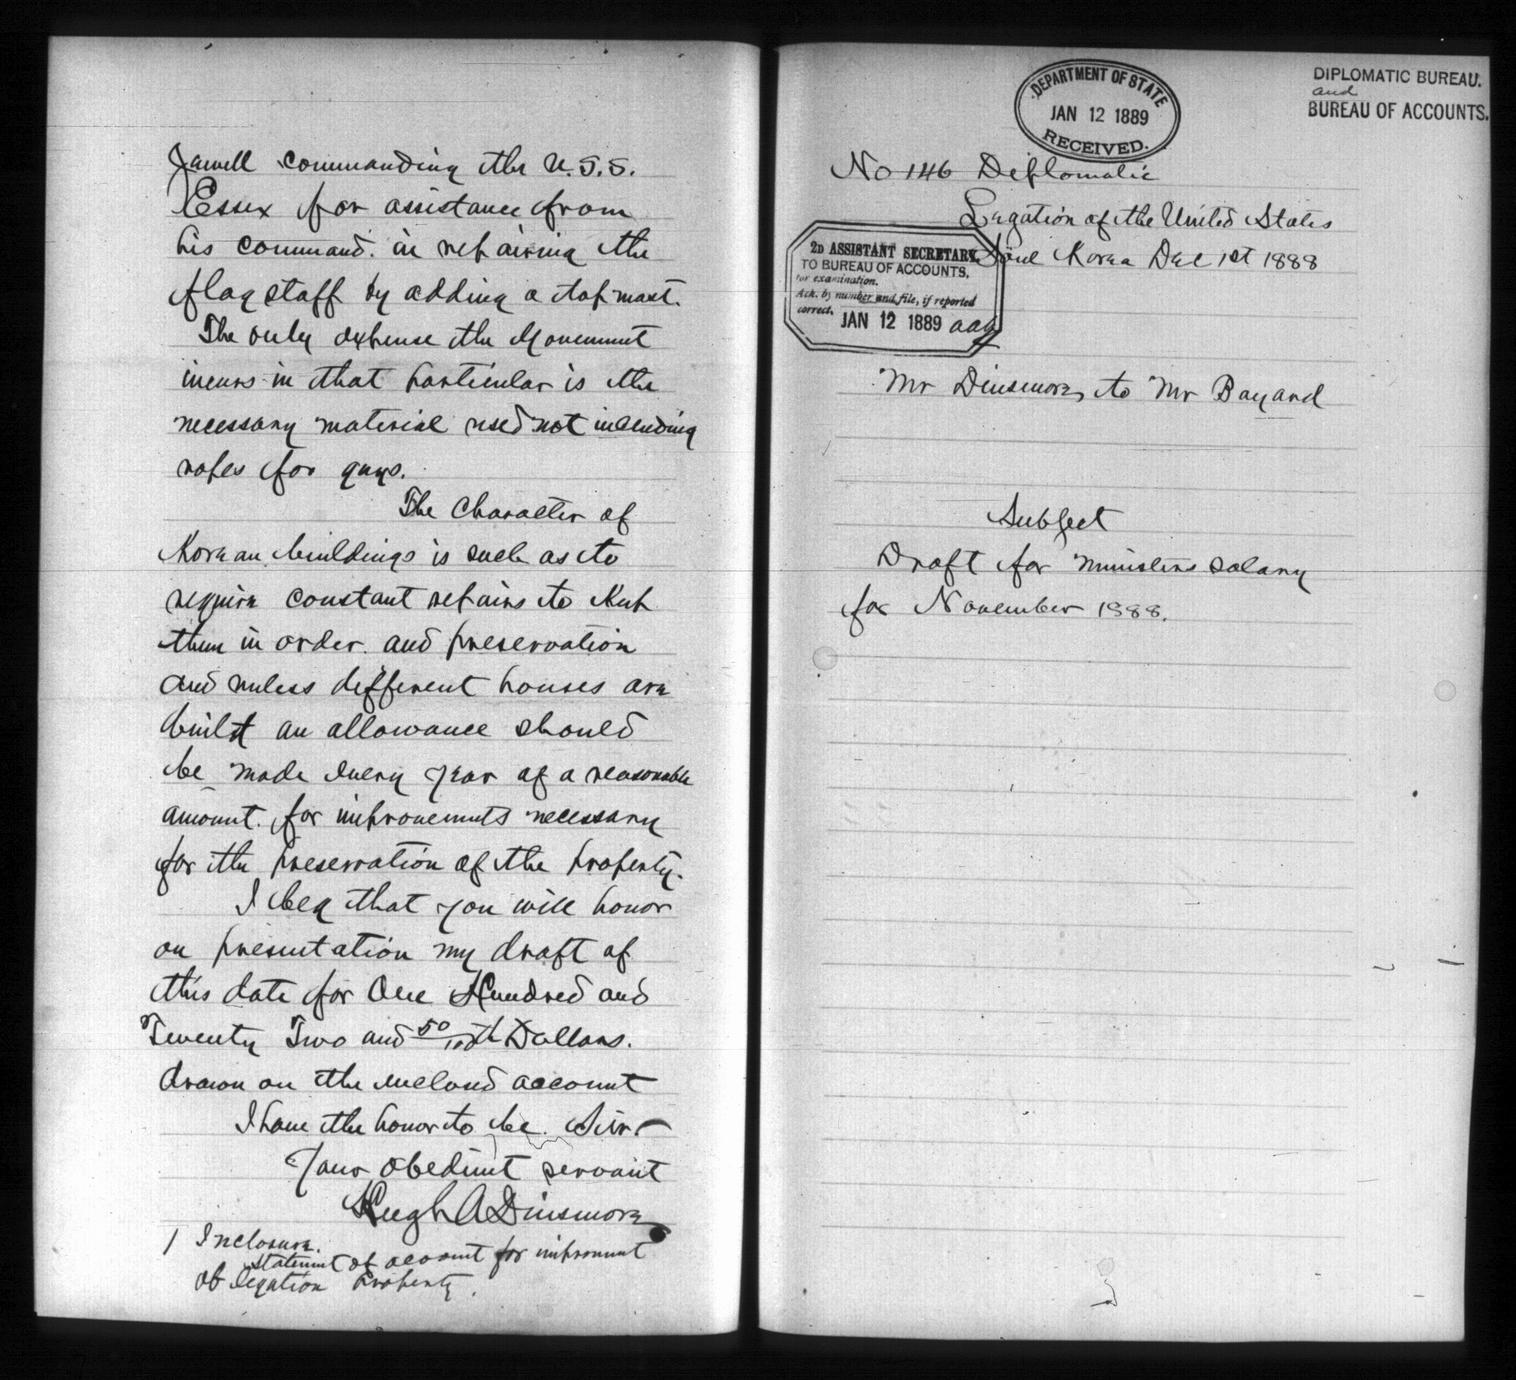 Jewell commanding the U.S.S.
Essex for assistance from
his command. in repairing the
flag staff by adding a topmast.
The only expense the Government
incurs in that particular is the
necessary material used not including
ropes for guys.
The Character of
Korean buildings is such as to
require constant repairs to keep
them in order. and preservation
and unless different houses are
built an allowance should
be made every year of a reasonable
amount. for improvements necessary
for the preservation of the property.
I beg that you will honor
on presentation my draft of
this date for One Hundred and
Twenty Two and 50/100th Dollars.
drawn on the inclosed account
I have the honor to be. Sir
Your obedient servant
Hugh A Dinsmore
1 Inclosure.
Statement of account for improvement
of legation Property.
DEPARTMENT OF STATE
JAN 12 1889
RECEIVED.
DIPLOMATIC BUREAU.
and
BUREAU OF ACCOUNTS.
No 146 Diplomatic
Legation of the United States
Söul Korea Dec 1st 1888
2D ASSISTANT SECRETARY
TO BUREAU OF ACCOUNTS,
for examination.
Ack. by number and file, if reported
correct.
JAN 12 1889 aaa
Mr Dinsmore, to Mr Bayard
Subject
Draft for ministers salary
for November 1888.